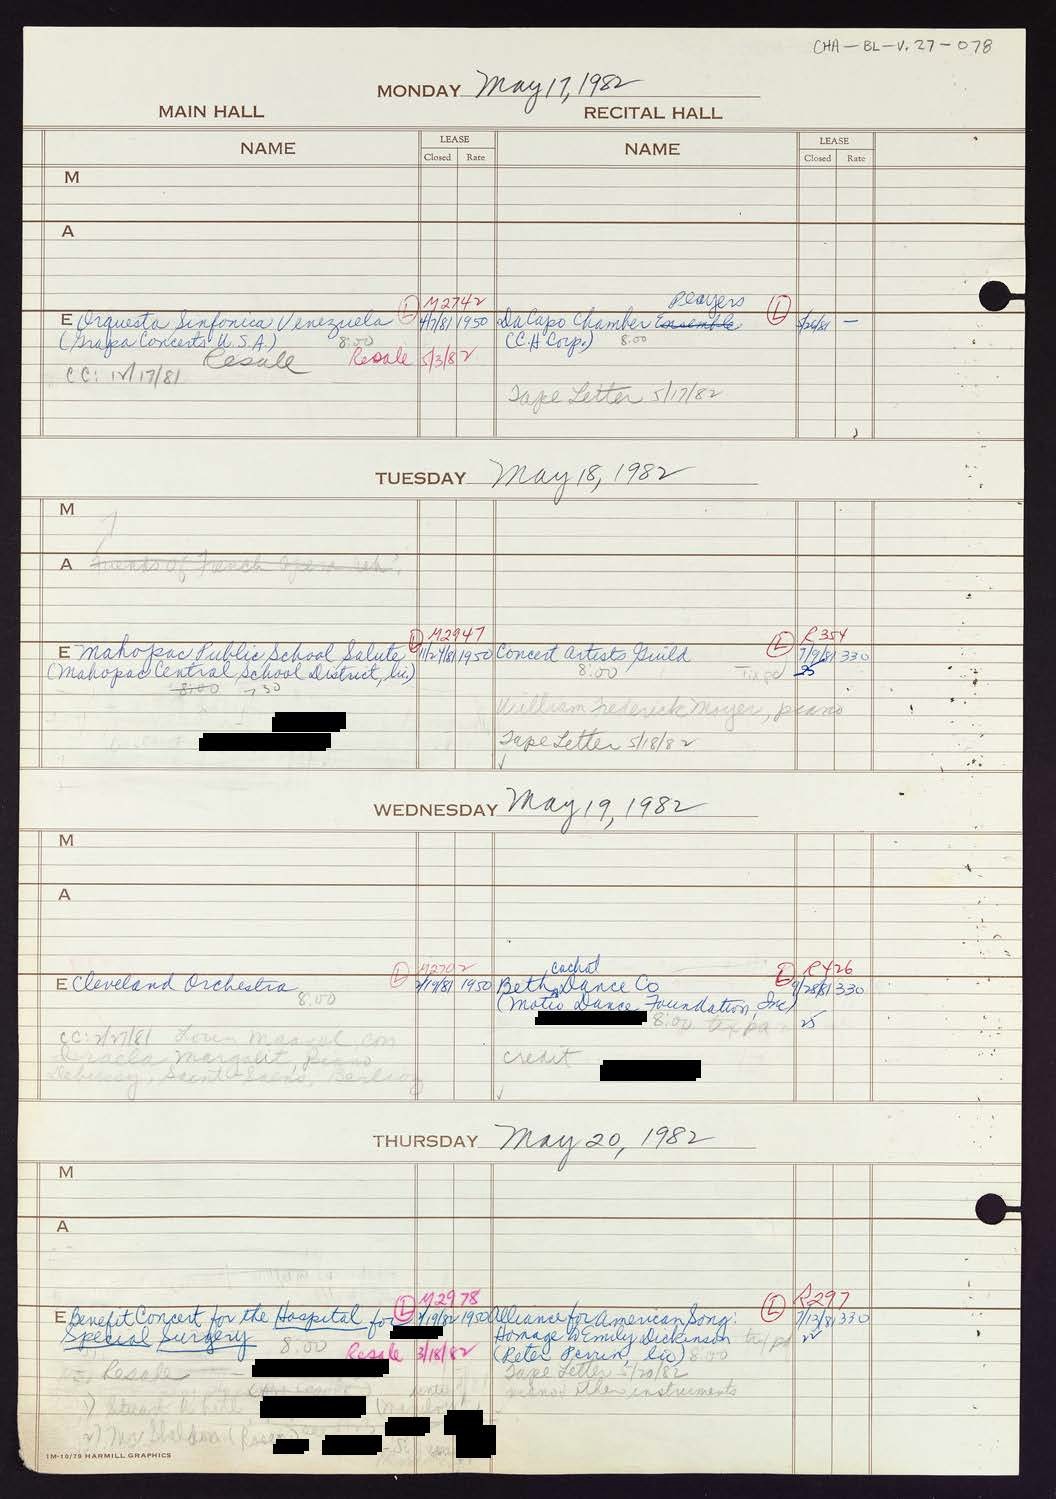 CHA-BL-V. 27-078
MONDAY May 17, 1982
MAIN HALL RECITAL HALL
NAME LEASE Closed Rate NAME LEASE Closed Rate
M
A
M2742 Players
E Orquesta Sinfonica Venezuela L 4/7/81 1950 Da Capo Chamber Ensemble L 5/26/81 —
(Grapa Concerts U.S.A.) 8:00 (C.H. Corp.) 8:00
Resale Resale 5/3/82
CC: 12/17/81
Tape Letter 5/17/82
TUESDAY May 18, 1982
M
A Friends of French Opera
M2947 R354
E Mahopac Public School Salute L 11/24/81 1950 Concert Artists Guild L 7/9/81 330
(Mahopac Central School District, lic) 8:00 Tix pd 25
8:00 7:30
William Frederick Moyer, piano
Tape Letter 5/18/82
WEDNESDAY May 19, 1982
M
A
M2702 Cachat R426
E Cleveland Orchestra L 2/19/81 1950 Beth Dance Co L 9/28/81 330
8:00 (Motio Dance Foundation, Inc)
8:00 tix pd 25
CC: 2/27/81 Lorin Maazel, con
Israela Margalit, piano credit
Debussy, Saint-Saens, Berlioz
THURSDAY May 20, 1982
M
A
M2978 R297
E Benefit Concert for the Hospital for L 1/19/82 1950 Alliance for American Song: L 7/13/81 330
Special Surgery Homage to Emily Dickinson tix pd
8:00 Resale 3/18/82 (Peter Perrin, lic) 8:00
Resale Tape Letter 5/20/82
piano & other instruments
1)
2) Mr Sheldon
1M-10/79 HARMILL GRAPHICS